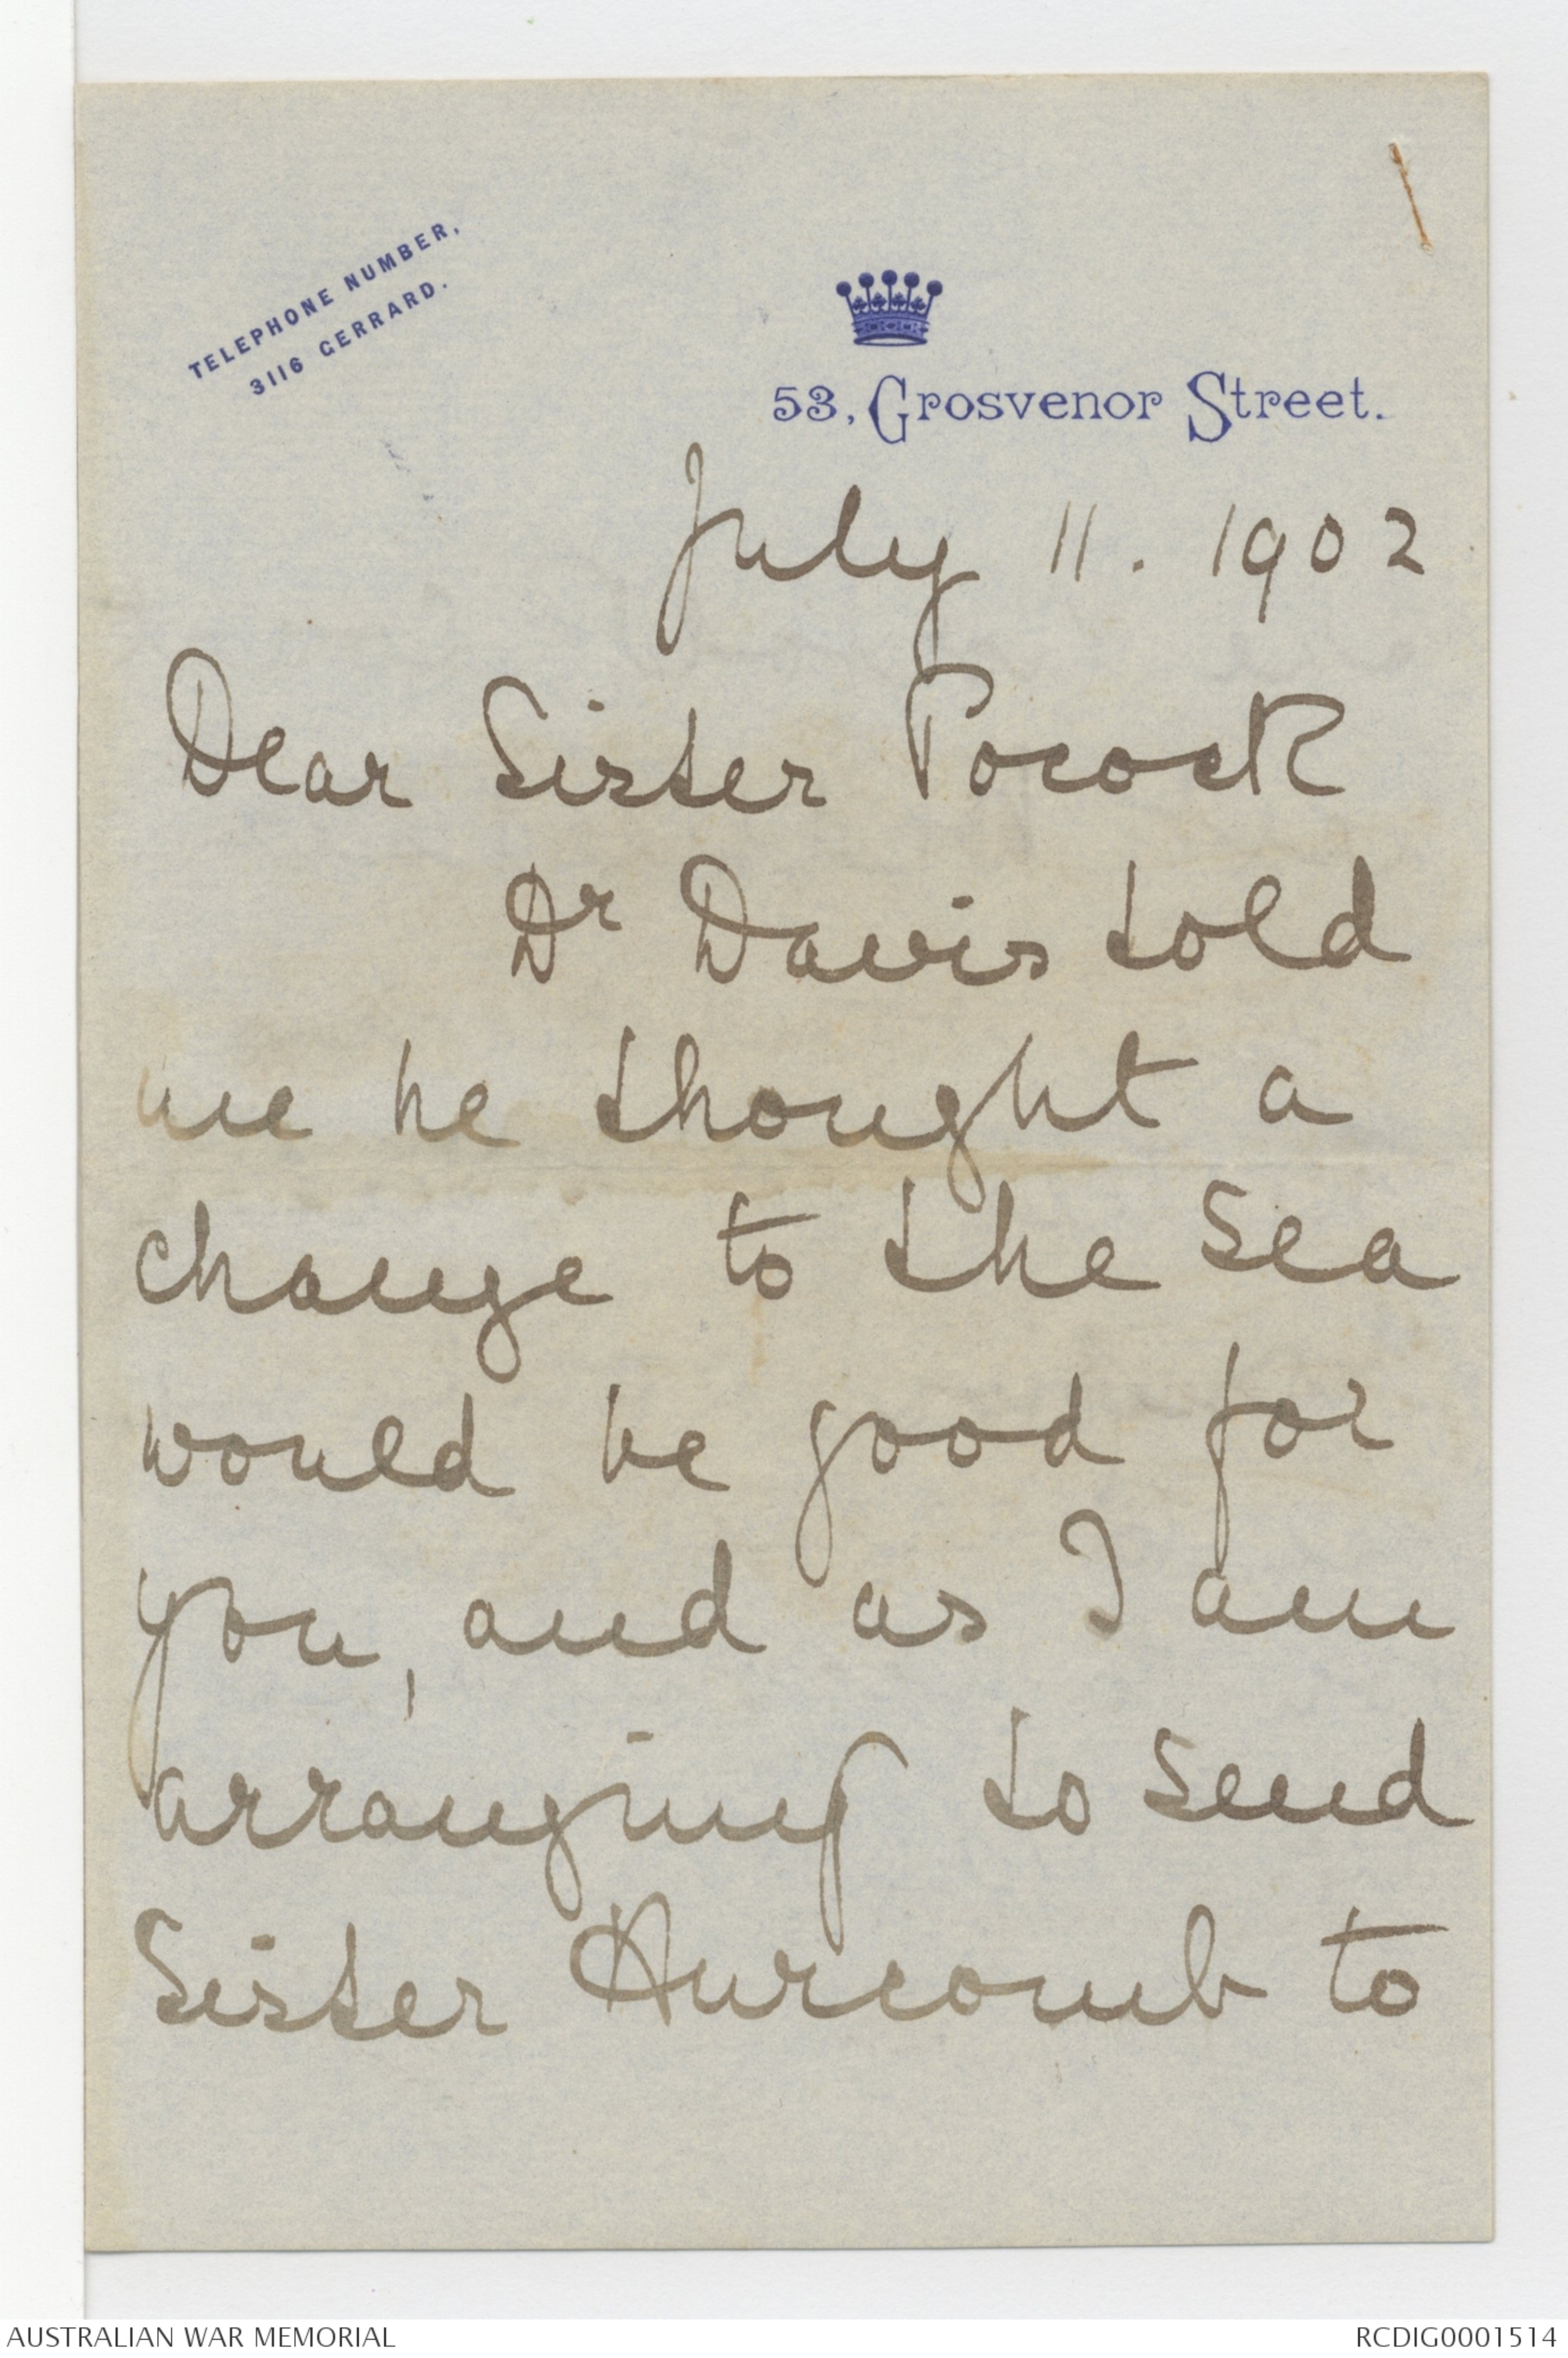 TELEPHONE NUMBER,
3116 GERRARD.
53, Grosvenor Street.
July 11. 1902
Dear Sister Pocock
Dr Davis told
me he thought a
change to the Sea
would be good for
you, and as I am
arranging to send
Sister Hurcomb to
AUSTRALIAN WAR MEMORIAL
RCDIG0001514